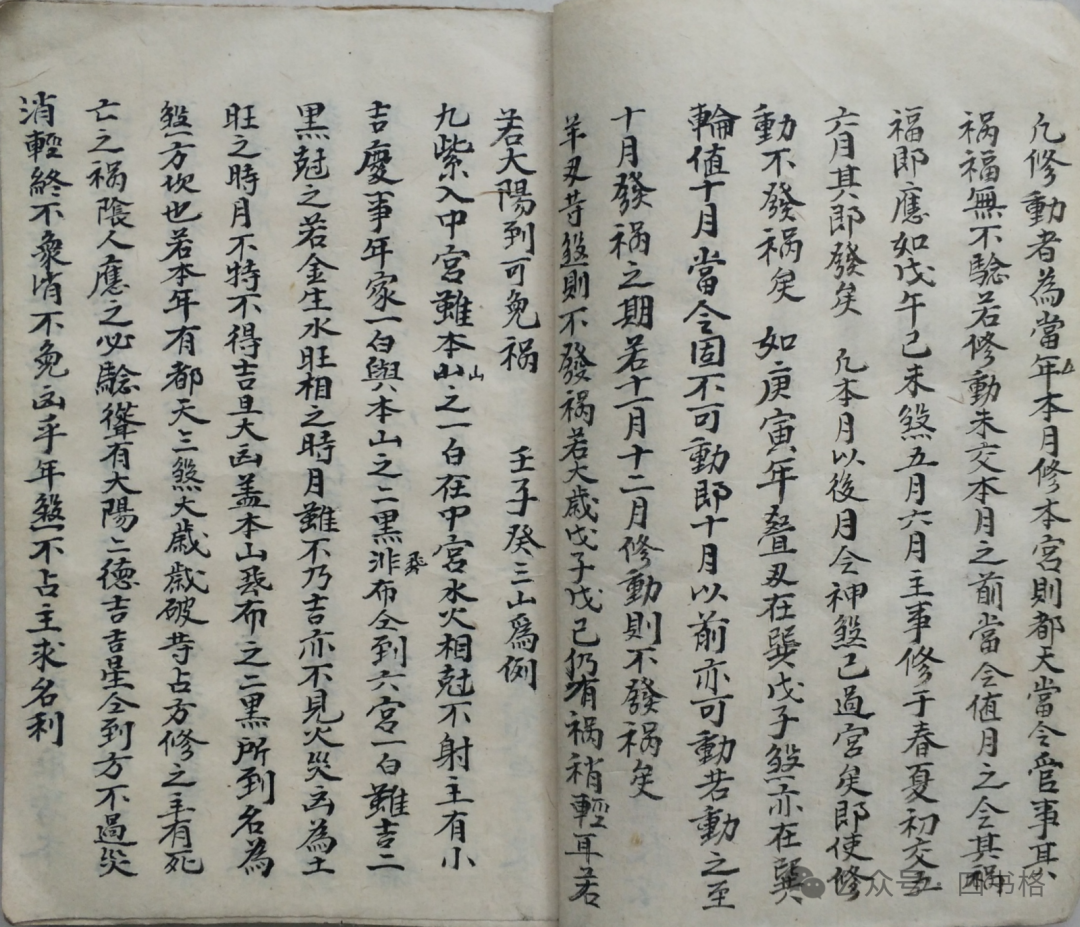 凡修動者為當年本月修本宮則都天當令管事其
祸福無不驗若修動未交本月之前當令值月之令其祸
福即應如戊午己未煞五月六月主事修于春夏初交五
六月其即發矣　凡本月以後月令神煞已過宮矣即使修
動不發祸矣　如庚寅年叠刄在巽戊子煞亦在巽
輪值十月當令固不可動即十月以前亦可動若動之至
十月發祸之期若十一月十二月修動則不發祸矣
羊刄等煞則不發祸若大歲戊子戊己仍有祸稍輕耳若
若大陽到可免祸　　壬子癸三山爲例
九紫入中宮雖本山山之一白在中宮水火相尅不射主有小
吉慶事年家一白與本山之二黑飛布仝到六宮一白雖吉二
黑尅之若金生水旺相之時月雖不乃吉亦不見火災凶為土
旺之時月不特不得吉且大凶盖本山飛布之二黑所到名為
煞方坎也若本年有都天三煞大歲歲破等占方修之主有死
亡之祸陰人應之必驗從有大陽二德吉吉星仝到方不過災
消輕終不象消不免凶乎年煞不占主求名利
众号 四书格